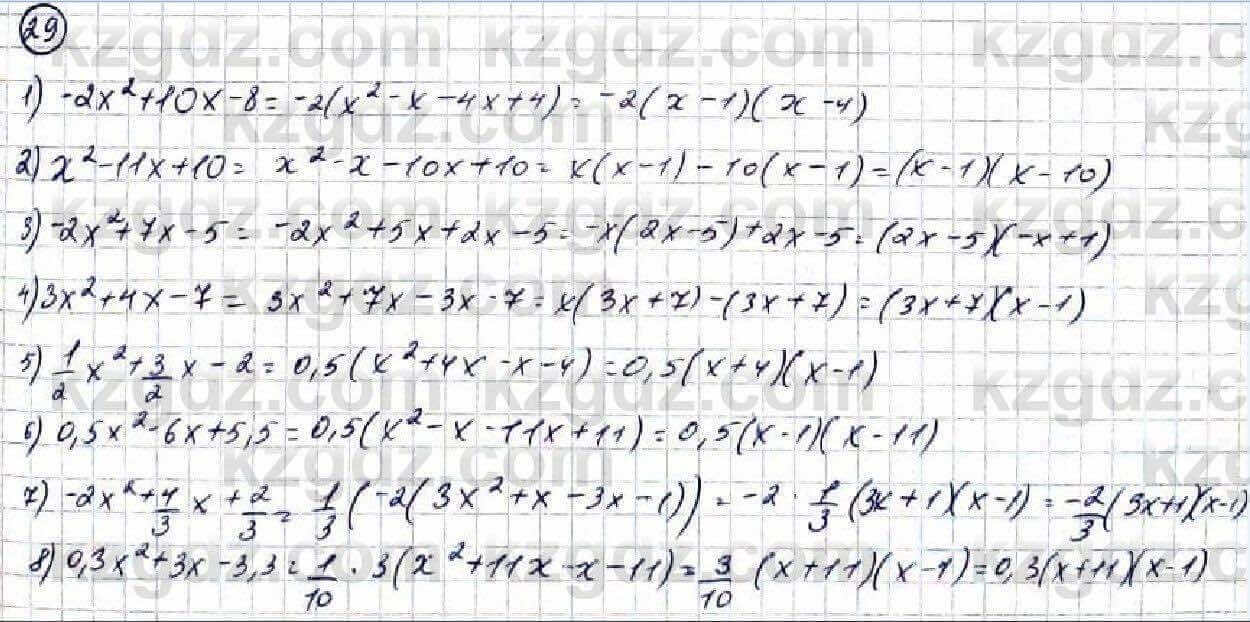 29
kzgdz.com kzgdz.com kzgdz.com
1) -2x²+10x-8=-2(x²-x-4x+4)=-2(x-1)(x-4)
2) x²-11x+10= x²-x-10x+10= x(x-1)-10(x-1)=(x-1)(x-10)
3) -2x²+7x-5= -2x²+5x+2x-5=-x(2x-5)+2x-5=(2x-5)(-x+1)
4) 3x²+4x-7= 3x²+7x-3x-7=x(3x+7)-(3x+7)=(3x+7)(x-1)
5) 1/2 x²+3/2 x-2= 0,5(x²+4x-x-4)=0,5(x+4)(x-1)
6) 0,5x²-6x+5,5=0,5(x²-x-11x+11)=0,5(x-1)(x-11)
7) -2x²+4/3 x+2/3= 1/3(-2(3x²+x-3x-1))=-2·1/3(3x+1)(x-1)=-2/3(3x+1)(x-1)
8) 0,3x²+3x-3,3=1/10·3(x²+11x-x-11)=3/10(x+11)(x-1)=0,3(x+11)(x-1)